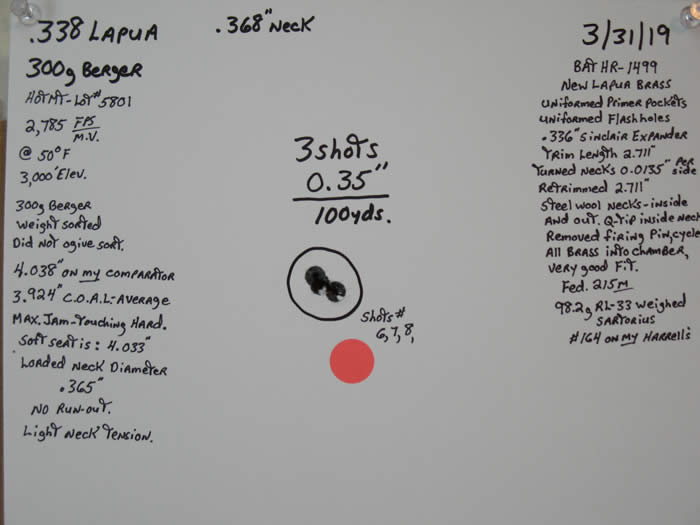 .338 LAPUA
300g BERGER
HOT MT-LOT# 5801
2,785 FPS/M.V.
@ 50°F
3,000' Elev.
300g BERGER
WEIGHT SORTED
DID NOT OGIVE SORT.
4.038" ON MY COMPARATOR
3.924" C.O.A.L-AVERAGE
MAX. JAM-TOUCHING HARD.
SOFT SEAT IS: 4.033"
LOADED NECK DIAMETER
.365"
NO RUN-OUT.
LIGHT NECK TENSION.
.368" NECK
3 SHOTS
0.35"
100yds.
SHOTS #
6,7,8,
3/31/19
BAT HR-1499
NEW LAPUA BRASS
UNIFORMED PRIMER POCKETS
UNIFORMED FLASHHOLES
.336" SINCLAIR EXPANDER
TRIM LENGTH 2.711"
TURNED NECKS 0.0135" PER SIDE
RETRIMMED 2.711"
STEEL WOOL NECKS-INSIDE
AND OUT. Q-TIP INSIDE NECK
REMOVED FIRING PIN, CYCLE
ALL BRASS INTO CHAMBER,
VERY GOOD FIT.
Fed. 215M
98.2g RL-33 WEIGHED
SARTORIUS
#164 ON MY HARRELL'S